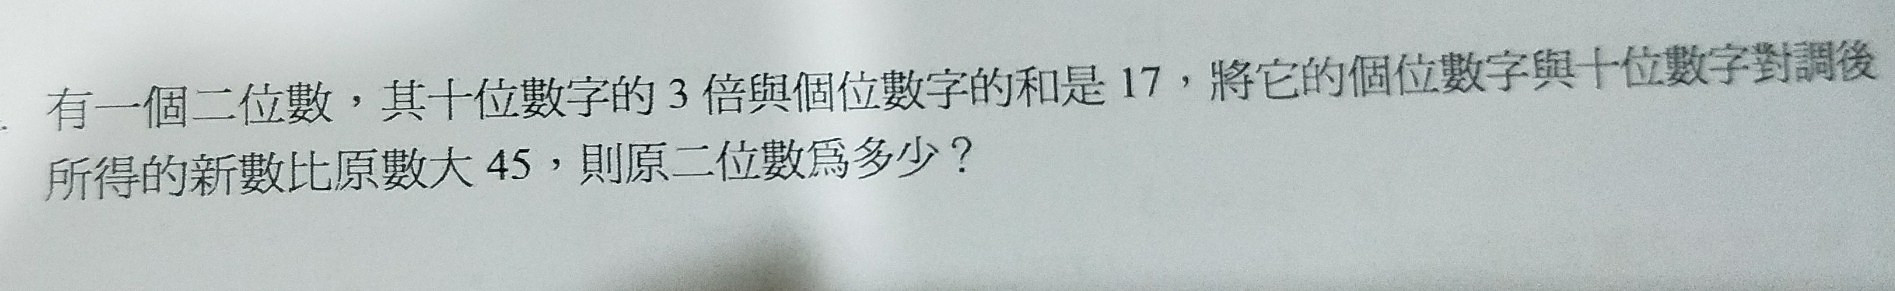 有一個二位數，其十位數字的 3 倍與個位數字的和是 17，將它的個位數字與十位數字對調後
所得的新數比原數大 45，則原二位數爲多少？